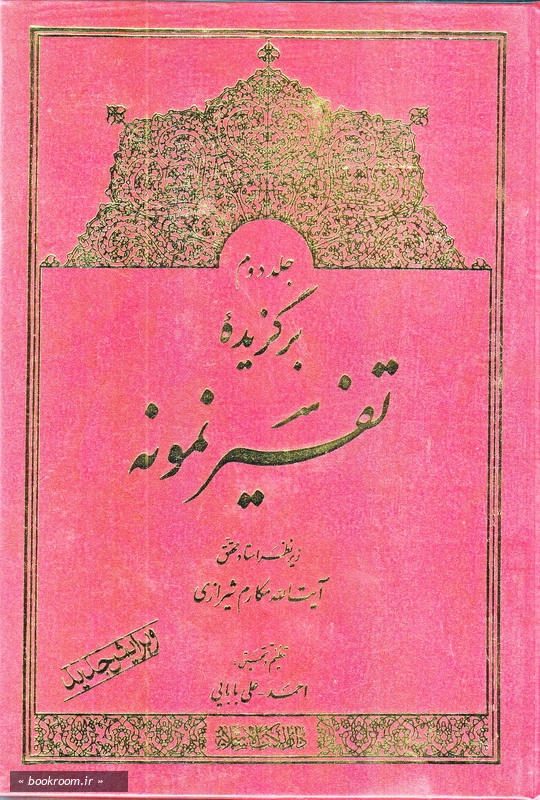 جلد دوم
برگزیدهٔ
تفسیر نمونه
زیر نظر استاد محقق
آیت الله مکارم شیرازی
ویرایش جدید
تنظیم و تحقیق:
احمد - علی بابایی
دارالکتب الاسلامیه
« bookroom.ir »